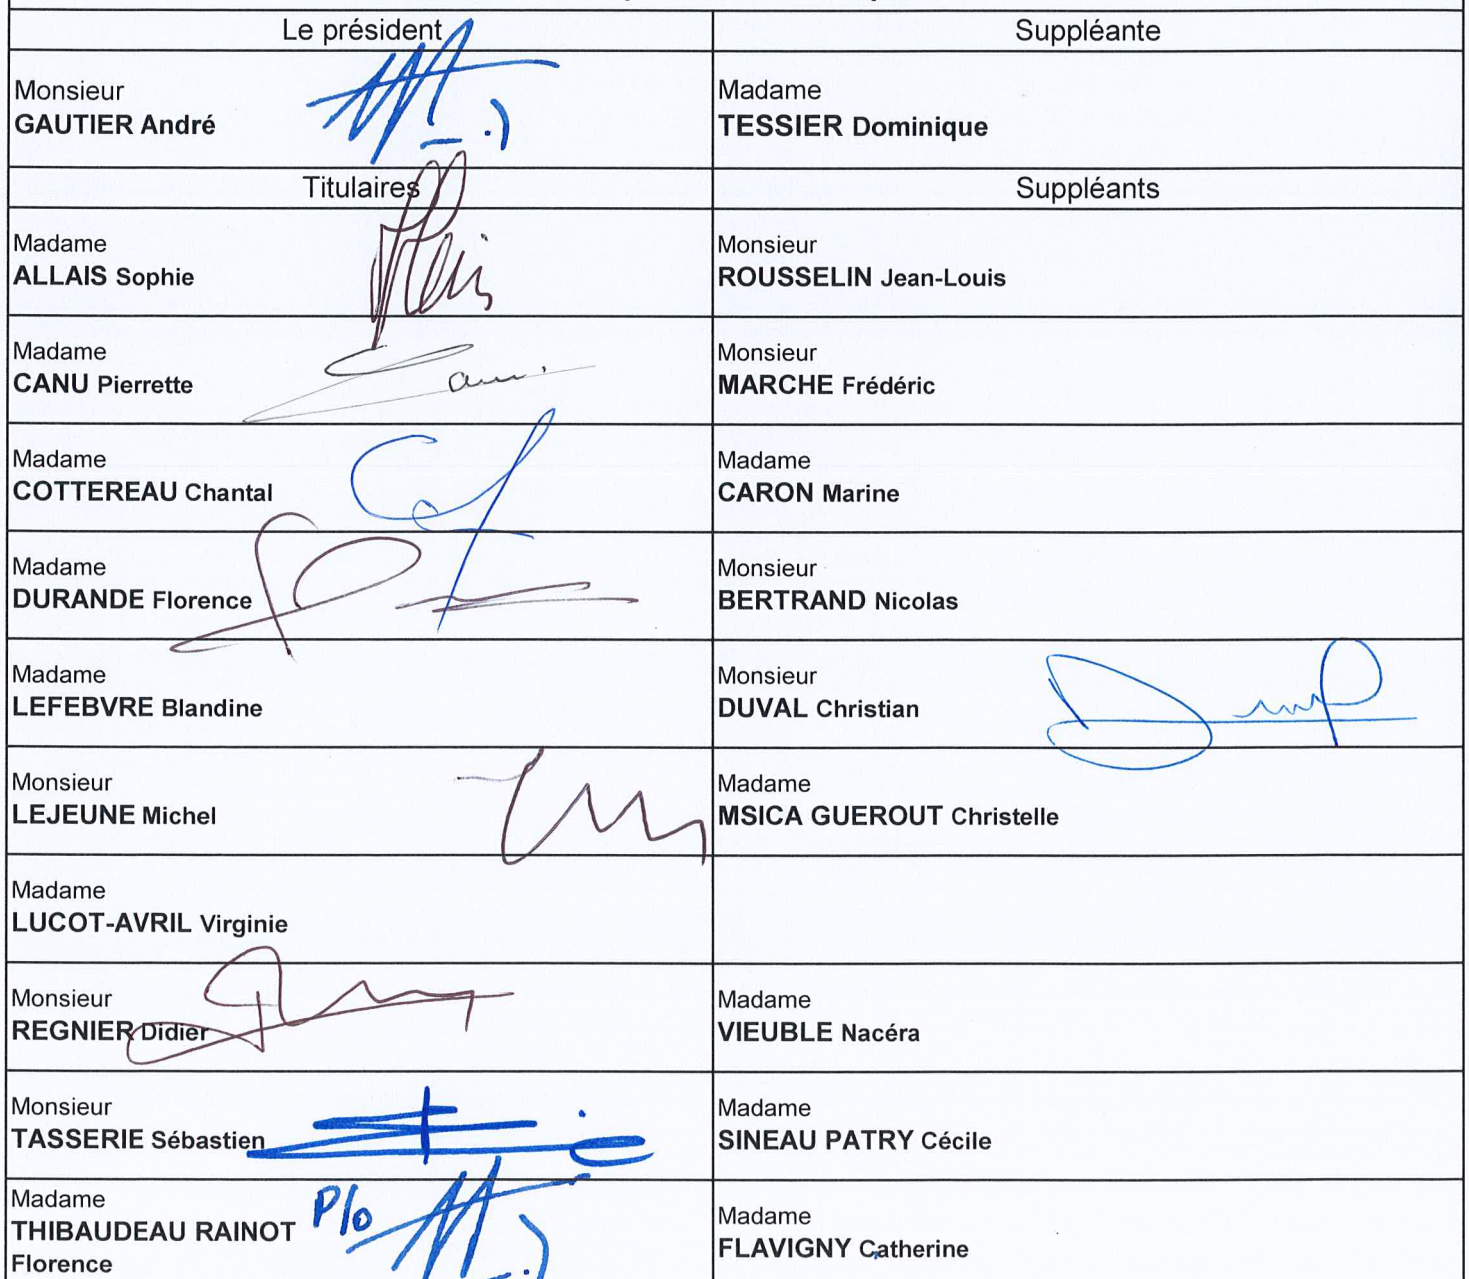 Le président
Suppléante
Monsieur
GAUTIER André
Madame
TESSIER Dominique
Titulaires
Suppléants
Madame
ALLAIS Sophie
Monsieur
ROUSSELIN Jean-Louis
Madame
CANU Pierrette
Monsieur
MARCHE Frédéric
Madame
COTTEREAU Chantal
Madame
CARON Marine
Madame
DURANDE Florence
Monsieur
BERTRAND Nicolas
Madame
LEFEBVRE Blandine
Monsieur
DUVAL Christian
Monsieur
LEJEUNE Michel
Madame
MSICA GUEROUT Christelle
Madame
LUCOT-AVRIL Virginie
Monsieur
REGNIER Didier
Madame
VIEUBLE Nacéra
Monsieur
TASSERIE Sébastien
Madame
SINEAU PATRY Cécile
Madame
THIBAUDEAU RAINOT
Florence
P/o
Madame
FLAVIGNY Catherine